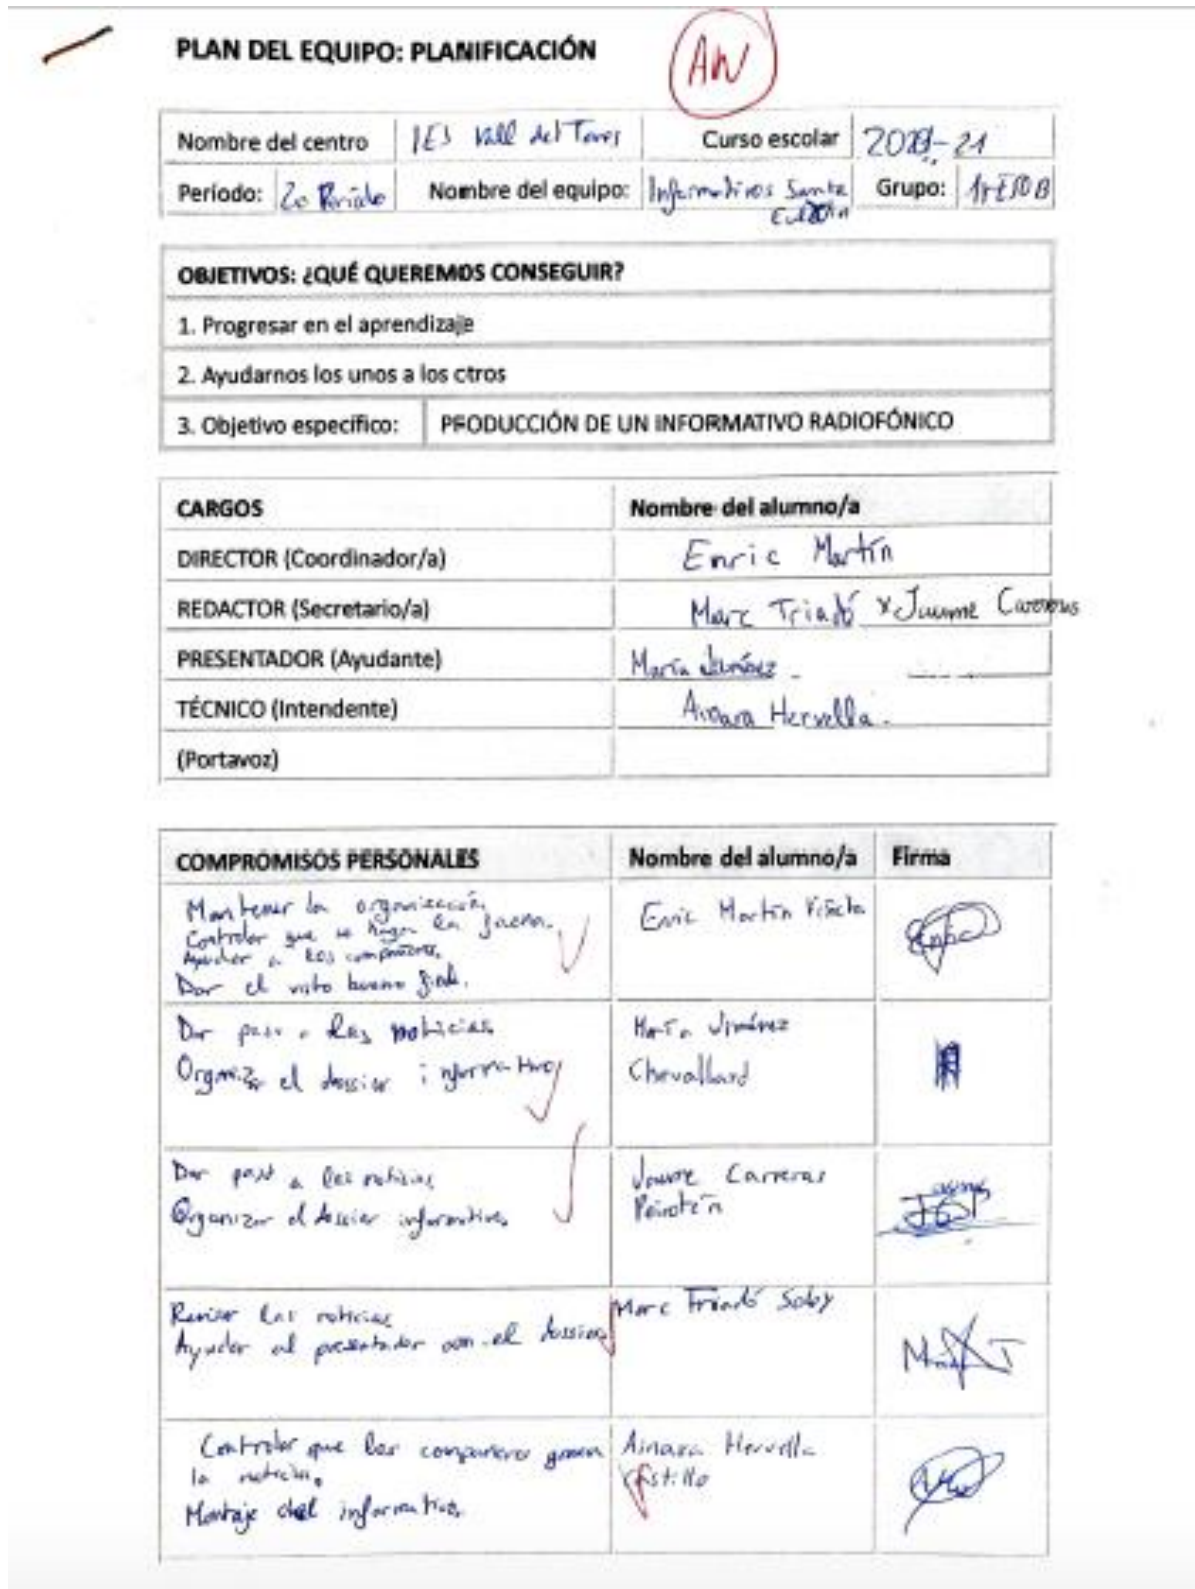 PLAN DEL EQUIPO: PLANIFICACIÓN
AN
Nombre del centro IES Vall del Tenes Curso escolar 2020-21
Período: 2o Período Nombre del equipo: Informativos Santa Grupo: 1r ESO B
OBJETIVOS: ¿QUÉ QUEREMOS CONSEGUIR?
1. Progresar en el aprendizaje
2. Ayudarnos los unos a los otros
3. Objetivo específico: PRODUCCIÓN DE UN INFORMATIVO RADIOFÓNICO
CARGOS Nombre del alumno/a
DIRECTOR (Coordinador/a) Enric Martín
REDACTOR (Secretario/a) Marc Triadó y Jaume Carreras
PRESENTADOR (Ayudante) María Jiménez
TÉCNICO (Intendente) Ainara Hervella.
(Portavoz)
COMPROMISOS PERSONALES Nombre del alumno/a Firma
Mantener la organización. Enric Martín
Controlar que se haga la faena.
Ayudar a los compañeros.
Dar el visto bueno final.
Dar paso a las noticias María Jiménez
Organizar el dossier informativo Chevallard
Dar paso a las noticias Jaume Carreras
Organizar el dossier informativo
Revisar las noticias Marc Triadó
Ayudar al presentador con el dossier
Controlar que los compañeros graven Ainara Hervella
la noticia. Castillo
Montaje del informativo.